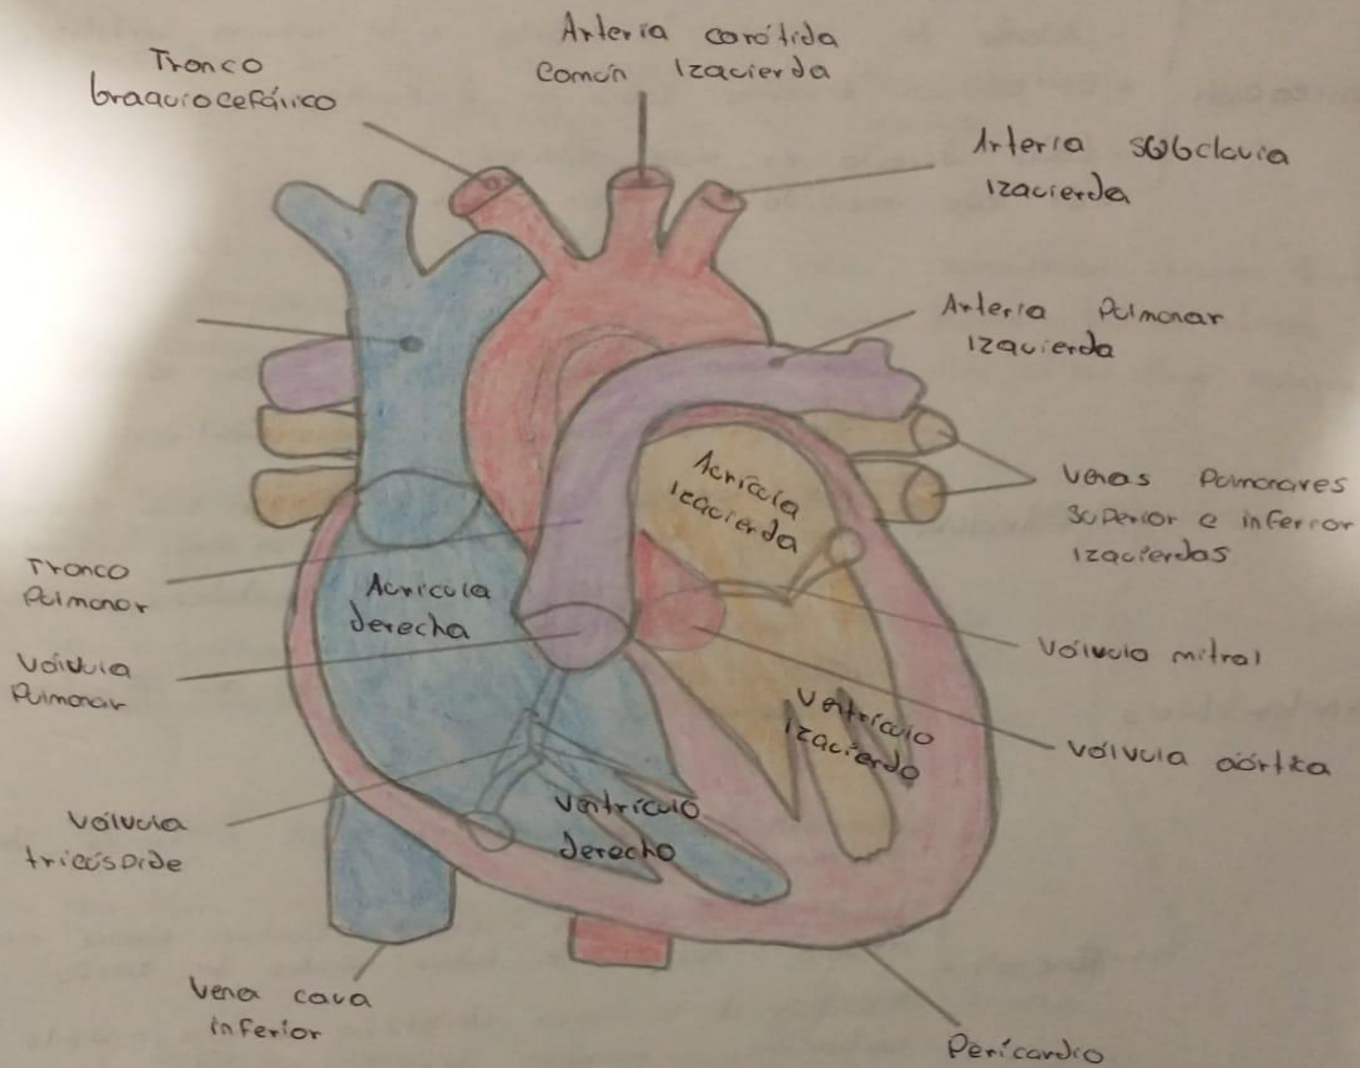 Tronco
braquiocefálico
Arteria carótida
Común Izquierda
Arteria subclavia
izquierda
Arteria Pulmonar
izquierda
Aurícula
izquierda
Venas Pulmonares
superior e inferior
izquierdas
Tronco
Pulmonar
Aurícula
derecha
Válvula
Pulmonar
Válvula mitral
Ventrículo
izquierdo
Válvula aórtica
Válvula
tricúspide
Ventrículo
derecho
Vena cava
inferior
Pericardio